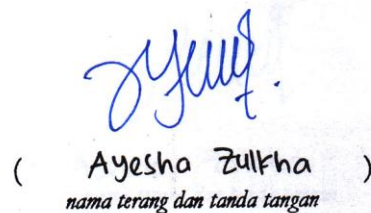 ( Ayesha Zulkha )
nama terang dan tanda tangan